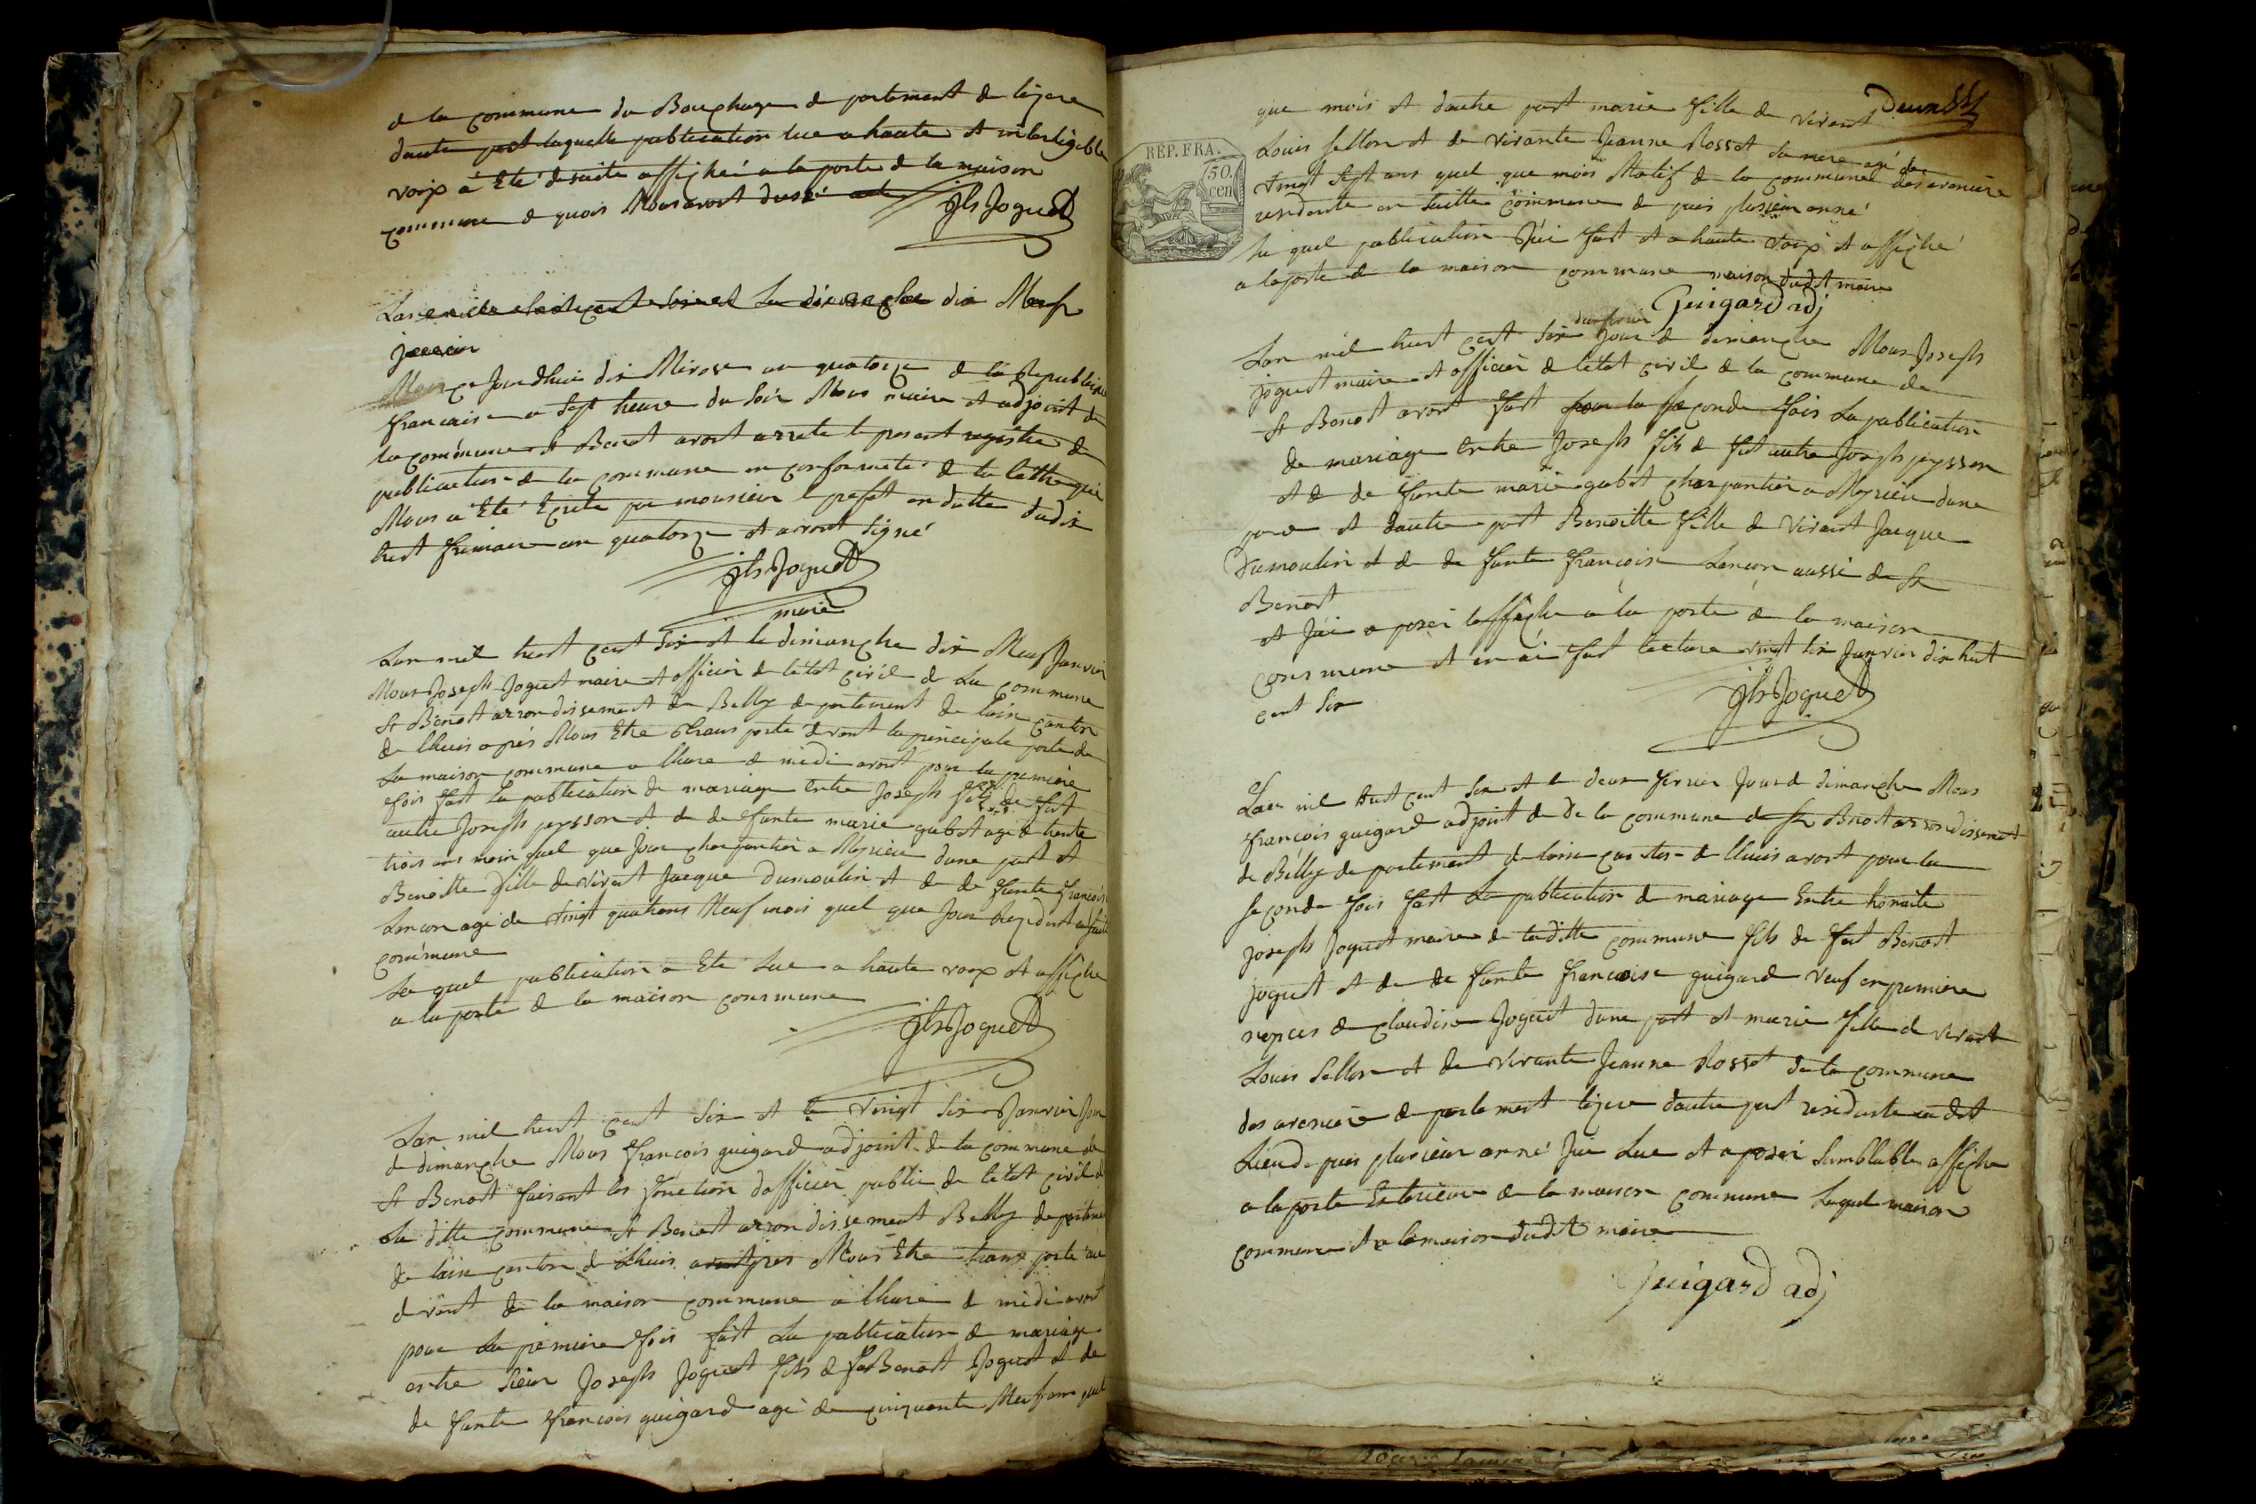 de la commune du Bouchage departement de lizere
dautre part laquelle publication lue a haute et intelligible
voix a Eté desuite affiché a la porte de la maison
commune de quois Nous avont dressé acte
Jh Joguet
Lan mile huit cent six et Le dimanche dix Neuf
janvier
Nous ce Jourdhui dix Nivose an quatorze de la Republique
francaise a Sept heure du soir Nous maire et adjoint de
la commune St Benoit avont arrete le present registre de
publication de la commune en conformité de la lettre qui
Nous a Eté Ecrite par monsieur le prefet en datte du dix
huit frimaire an quatorze et avont signé
Jh Joguet
maire
Lan mil huit cent six et le dimanche dix Neuf Janvier
Nous Joseph Joguet maire et officier de létat civil de La commune
St Benoit arrondissement de Belley departement de lain canton
de lhuis après Nous Etre transporté devant la principale porte de
La maison commune a lheure de midi avont pour la premiere
fois fait La publication de mariage Entre Joseph fils de fut
autre Joseph peysson et de defunte marie gubot agé de trente
trois ans moin quel que Jour charpantier a Meprieu dune part et
Benoitte fille de vivant Jacque Dumoulin et de defunte francoise
Lancon agé de vingt quatrans Neuf mois quel que Jour Rezidant
commune
La quel publication a Eté Lue a haute voix et affiche
a la porte de la maison commune
Jh Joguet
Lan mil huit cent six et le vingt six Janvier Jour
de dimanche Nous francois guigard adjoint de la commune de
St Benoit faisant les fonction dofficier public de létat civil de
La ditte commune St Benoit arrondissement Belley departement
de lain canton de lhuis après Nous Etre transporté au
devant de la maison commune a lheure de midi avont
pour La premiere fois fait La publication de mariage
entre sieur Joseph Joguet fils de fu Benoit Joguet et de
defunte francois guigard agé de cinquante Neuf ans quel
Deux
que mois et dautre part marie fille de vivant
Louis Sellon et de vivante Jeanne Rosset sa mere agé de
vingt sept ans quel que mois Natif de la commune des avenieres
residante en laditte commune de puis plusieur anné
La quel publication J'ai fait et a haute voix et affiché
a la porte de la maison commune maison dudit maire
Guigard adj
Lan mil huit cent six Jour de dimanche Nous Joseph
Joguet maire et officier de létat civil de la commune de
St Benoit avont fait pour la seconde fois La publication
de mariage Entre Joseph fils de fut autre Joseph peysson
et de defunte marie gubot charpantier a Meprieu dune
part et dautre part Benoitte fille de vivant Jacque
Dumoulin et de defunte francoise Lancon aussi de St
Benoit
et J'ai a poser laffiche a la porte de la maison
commune et en ai fait lecture vingt six Janvier dix huit
cent six
Jh Joguet
Lan mil huit cent six et le deux fevrier Jour de dimanche Nous
francois guigard adjoint de la commune de St Benoit arrondissement
de Belley departement de lain canton de lhuis avont pour la
seconde fois fait La publication de mariage Entre honaite
joseph Joguet maire de laditte commune fils de fut Benoit
joguet et de defunte francoise guigard veuf en premiere
nopces de claudine Joguet dune part et marie fille de vivant
Louis Sellon et de vivante Jeanne Rosset de la commune
des avenieres departement lizere dautre part residante audit
Lieu de puis plusieur anné J'ai Lue et a poser semblable affiche
a la porte Exterieure de la maison commune Laquel maison
commune et a la maison dudit maire
Guigard adj
REP. FRA.
50.
cen